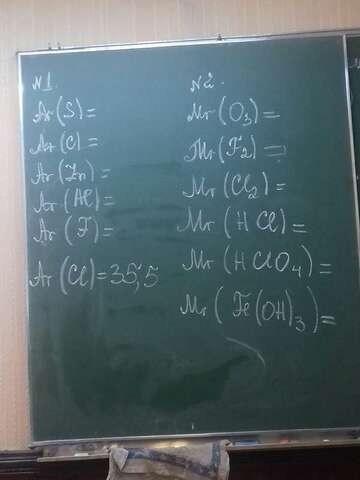 №1.
Ar(S)=
Ar(C)=
Ar(Zn)=
Ar(Al)=
Ar(F)=
Ar(Cl)=35,5
№2.
Mr(O₃)=
Mr(F₂)=
Mr(Cl₂)=
Mr(HCl)=
Mr(HClO₄)=
Mr(Fe(OH)₃)=